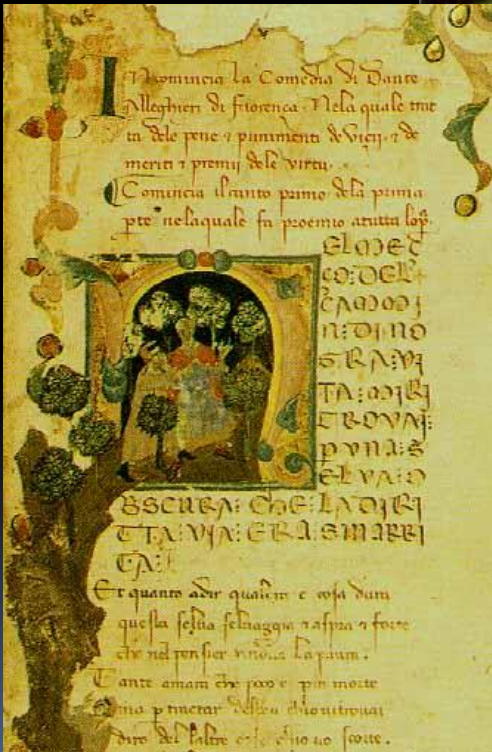 Incomincia la Comedia di Dante
Alleghieri di fiorenca. Nela quale trac
ta dele pene ⁊ punimenti de vicij. ⁊ de
meriti ⁊ premij dele virtu.
Comincia il canto primo dela prima
pte nelaquale fa proemio atutta lop̄.
EL MEÇ
ÇO: DEL
CAMMI
N: DI NO
SRA: VI
TA: MIRI
TROVAI:
P UNA: S
ELVA: O
BSCURA: CHE: LADIRI
TTA: VIA: ERA SMARRI
TA:
Et quanto adir qual e cosa dura
questa selva selvaggia ⁊ aspra ⁊ forte
che nel pensier la paura.
Tante amara che poco e piu morte
p tractar chio vi trovai
diro del laltre chio vo scorte.